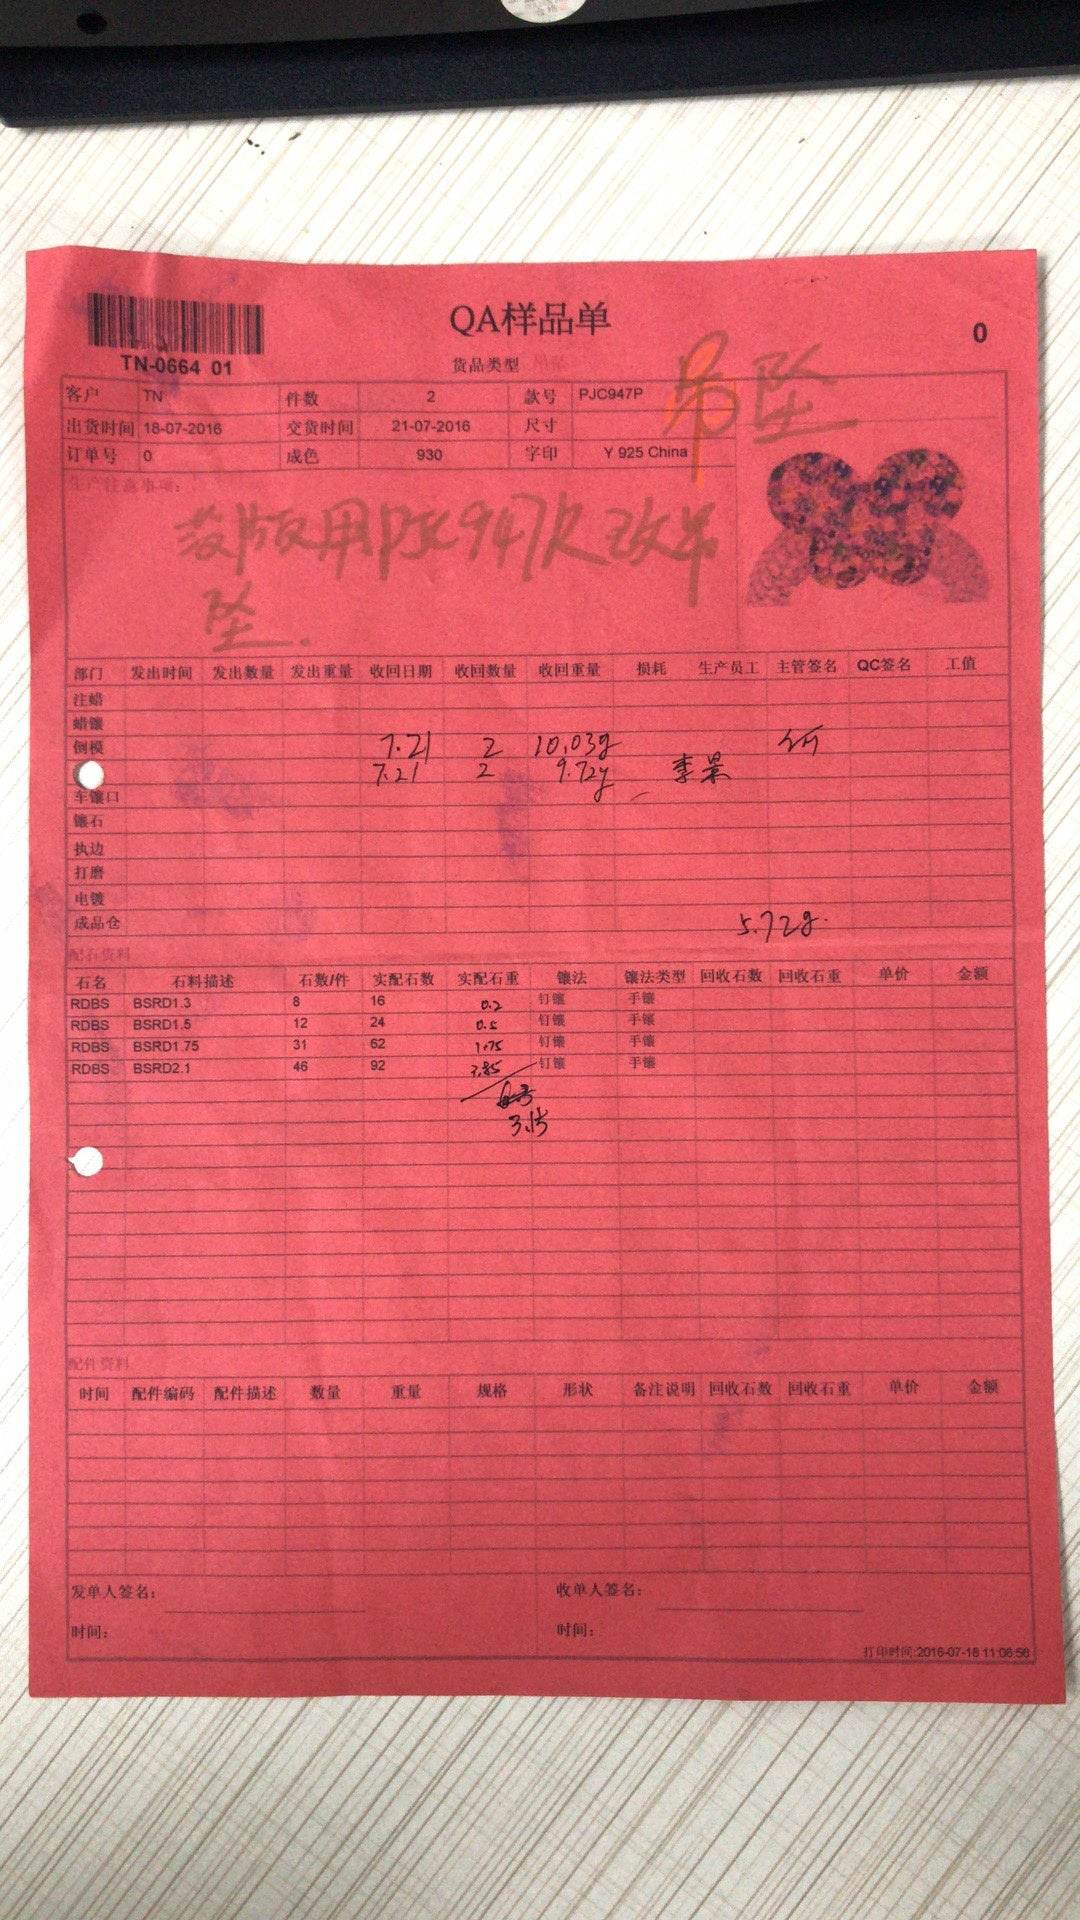 QA样品单
0
TN-0664 01
货品类型 吊坠
吊坠
客户 TN 件数 2 款号 PJC947P
出货时间 18-07-2016 交货时间 21-07-2016 尺寸
订单号 0 成色 930 字印 Y 925 China
生产注意事项:
版用PJC947 改吊
坠.
部门 发出时间 发出数量 发出重量 收回日期 收回数量 收回重量 损耗 生产员工 主管签名 QC签名 工值
注蜡
蜡镶
倒模 7.21 2 10.03g
7.21 2 9.72g 李景
车镶口
镶石
执边
打磨
电镀
成品仓 5.72g.
配石资料
石名 石料描述 石数/件 实配石数 实配石重 镶法 镶法类型 回收石数 回收石重 单价 金额
RDBS BSRD1.3 8 16 0.2 钉镶 手镶
RDBS BSRD1.5 12 24 0.5 钉镶 手镶
RDBS BSRD1.75 31 62 1.75 钉镶 手镶
RDBS BSRD2.1 46 92 3.85 钉镶 手镶
3.15
配件资料
时间 配件编码 配件描述 数量 重量 规格 形状 备注说明 回收石数 回收石重 单价 金额
发单人签名: 收单人签名:
时间: 时间:
打印时间:2016-07-18 11:06:56